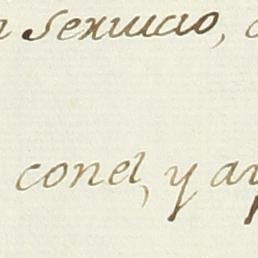 Servicio,
conel, y